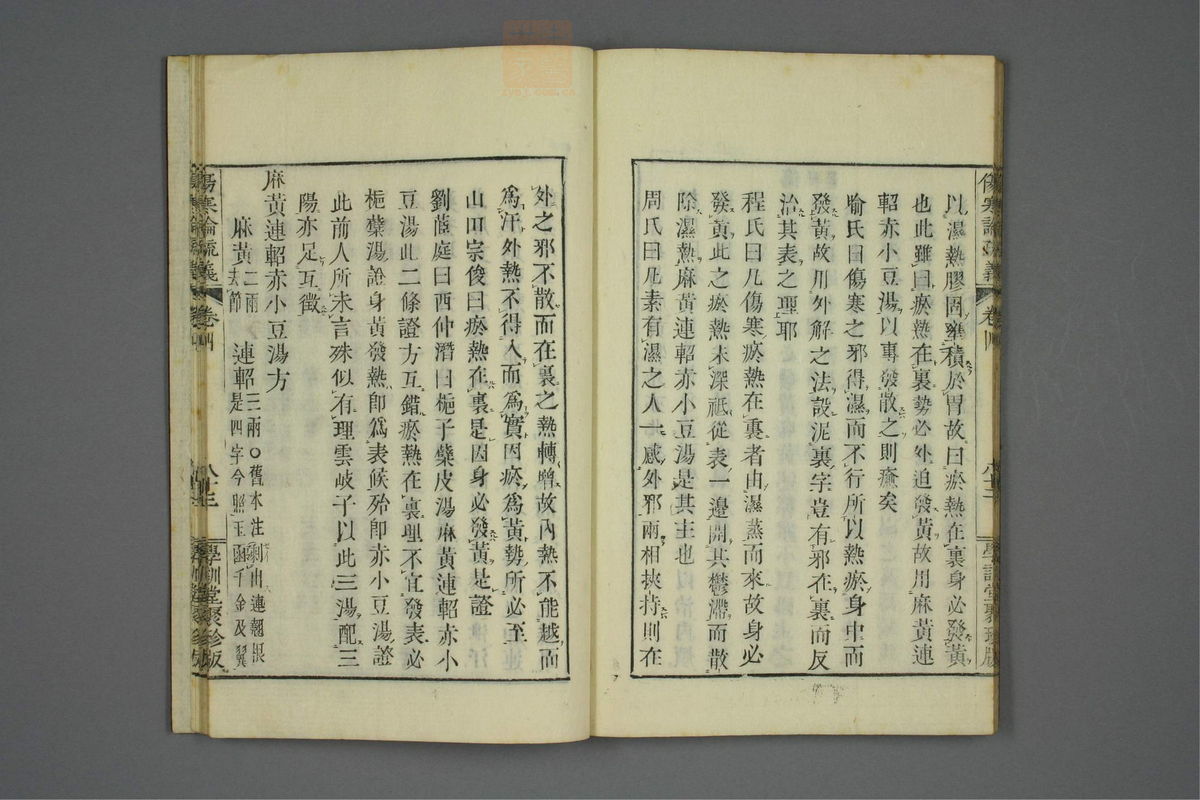 以濕熱膠固壅積於胃故曰瘀熱在裏身必發黃
也此雖曰瘀熱在裏勢必外迫發黃故用麻黃連
軺赤小豆湯以專發散之則癒矣
喻氏曰傷寒之邪得濕而不行所以熱瘀身中而
發黃故用外解之法設泥裏字豈有邪在裏而反
治其表之理耶
程氏曰凡傷寒瘀熱在裏者由濕蒸而來故身必
發黃此之瘀熱未深祗從表一邊開其鬱滯而散
除濕熱麻黃連軺赤小豆湯是其主也
周氏曰凡素有濕之人一感外邪兩相挾持則在
外之邪不散而在裏之熱轉增故內熱不能越而
爲汗外熱不得入而爲實因瘀爲黃勢所必至
山田宗俊曰瘀熱在裏是因身必發黃是證
劉蓙庭曰西仲潛曰梔子蘗皮湯麻黃連軺赤小
豆湯此二條證方互錯瘀熱在裏理不宜發表必
梔蘗湯證身黃發熱卽爲表候殆卽赤小豆湯證
此前人所未言殊似有理雲岐子以此三湯配三
陽亦足互徵
麻黃連軺赤小豆湯方
麻黃二兩去節 連軺二兩○舊本注剩曲連翹根是四字今照玉函千金及翼
傷寒論疏義 卷四 八十三 學訓堂聚珍版